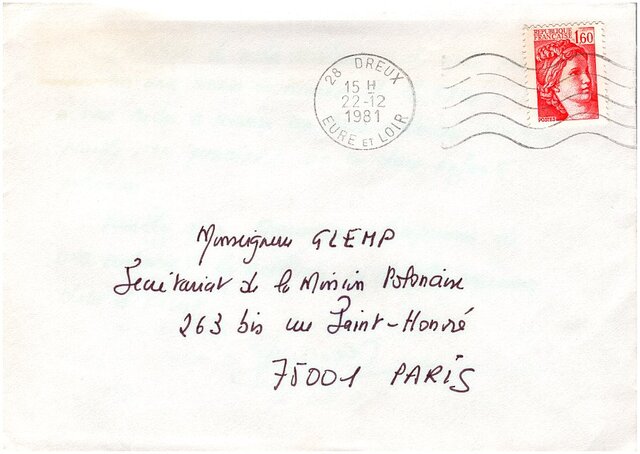 28 DREUX
15 H
22-12
1981
EURE ET LOIR
REPUBLIQUE
FRANCAISE
1,60
POSTES
Monseigneur GLEMP
Secrétariat de la Mission Polonaise
263 bis rue Saint-Honoré
75001 PARIS